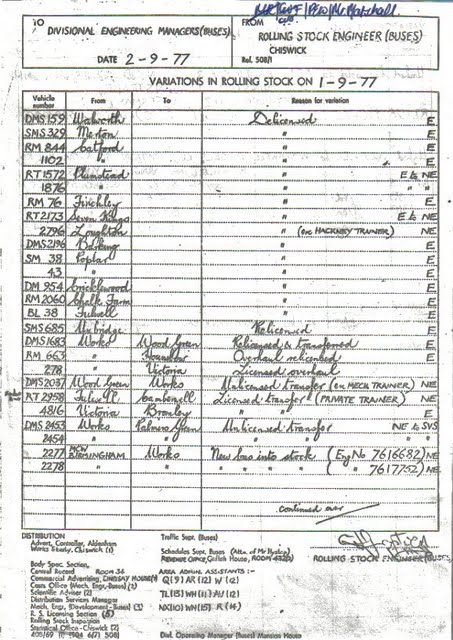 TO
DIVISIONAL ENGINEERING MANAGERS(BUSES)
DATE 2-9-77
FROM
ROLLING STOCK ENGINEER (BUSES)
CHISWICK
Ref. 508/1
VARIATIONS IN ROLLING STOCK ON 1-9-77
Vehicle number From To Reason for variation
DMS 159 Walworth Delicensed E
SMS 329 Merton " E
RM 844 Catford " E
1102 " " E
RT 1572 Plumstead " E to NE
1876 " " " "
RM 76 Finchley " E
RT 2173 Seven Kings " E to NE
2796 Loughton " (ex HACKNEY TRAINER) NE
DMS 2196 Barking " E
SM 38 Poplar " E
43 " " E
DM 954 Cricklewood " E
RM 2060 Chalk Farm " E
BL 38 Fulwell " E
SMS 685 Uxbridge Relicensed E
DMS 1683 Works Wood Green Relicensed & transferred E
RM 663 " Hounslow Overhaul relicensed E
278 " Victoria Licensed overhaul
DMS 2037 Wood Green Works Unlicensed transfer (ex MECH TRAINER) NE
RT 2958 Camberwell Licensed transfer (PRIVATE TRAINER) NE
4816 Victoria Bromley " " E
DMS 2453 Works Palmers Green Unlicensed transfer NE to SVS
2454 " " " " " " "
2277 MCW BIRMINGHAM Works New bus into stock (Eng No 7616682) NE
2278 " " " " " " ( " " 7617752) NE
continued over
DISTRIBUTION
Advert. Controller, Aldenham
Works Study, Chiswick (1)
Body Spec. Section,
Central Record ROOM 36
Commercial Advertising, LINDSAY HOUSE
Cost Office (Mech. Engr.-Buses) (2)
Scientific Adviser (2)
Distribution Services Manager
Mech. Engr. (Development-Buses) (3)
R. S. Licensing Section (5)
Rolling Stock Inspection
Statistical Office-Chiswick (2)
Traffic Supt. (Buses)
Schedules Supt. Buses (Attn. of Mr Hyslop)
AREA ADMIN ASSISTANTS :-
Q(9) AR(12) W(12)
TL(15) WN(11) AV(12)
NX(10) WR(15) R(14)
Dist. Operating Manager (Buses) Mansion House
ROLLING STOCK ENGINEER (BUSES)